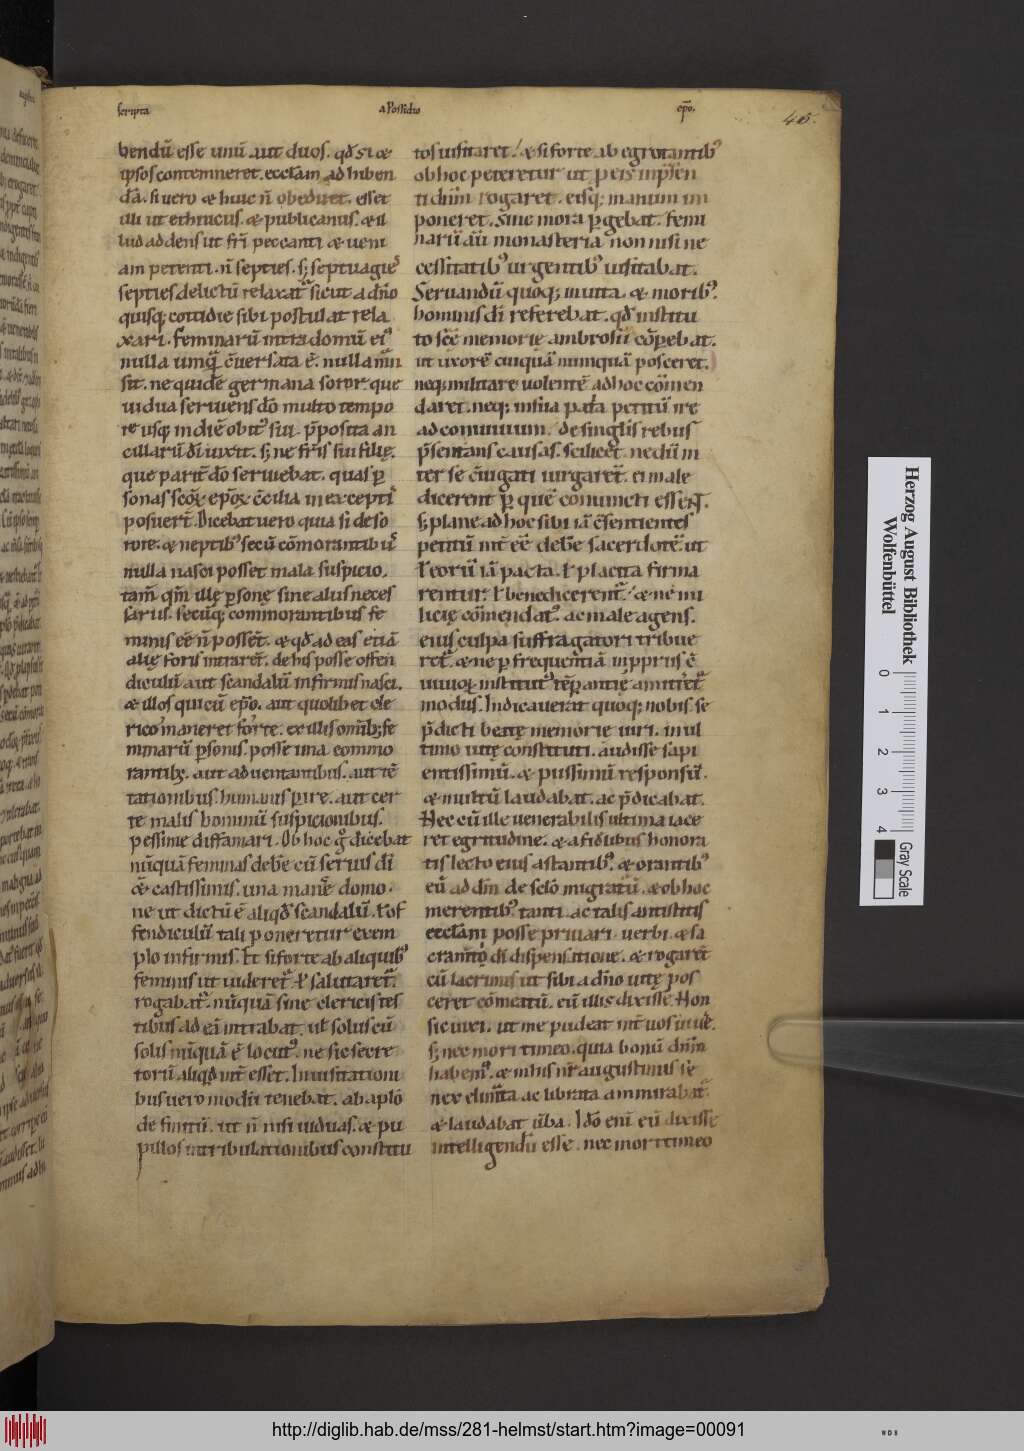 scripta a Possidio ep̄o.
45.
bendū esse unū aut duos. qđ si &
ipsos contemneret. ecclām adhiben
dā. si uero & huic n̄ obediret. esset
illi ut ethnicus. & publicanus. & il
lud addens ut frī peccanti & ueni
am petenti. n̄ septies. sꝫ septuagies
septies delictū relaxat̃ sicut a dn̄o
quisqꝫ cottidie sibi postulat rela
xari. Feminarū intra domū ei᷒
nulla umq̃ c̄uersata ē. nulla mā 
sit. ne quidē germana soror que
uidua seruiens dō multo tempo
re usqꝫ in diē obit᷒ sui. p̄posita an
cillarū dī uixit. sꝫ ne fr̄is sui filię.
que parit̃ dō seruiebat. quas ꝑ
sonas scōꝝ ep̄oꝝ c̄cilia in exceptis
posuert̄. Dicebat uero quia si de so
rore. & neptib᷒ secū cōmorantibus
nulla nasci posset mala suspicio.
tam̄ qm̄ illę ꝑsonę sine aliis neces
sariis. secūqꝫ commorantibus fe
minis eē n̄ possent̄. & qđ ad eas etiā
alię foris intrarent̄. de his posse offen
diculū aut scandalū infirmis nasci.
& illos qui cū ep̄o. aut quolibet cle
rico maneret forte. ex illis omīb; fe
minarū ꝑsonis. posse una commo
rantibꝫ. aut aduentantibus. aut tē
tationibus humanis ꝑire. aut cer
te malis hominū suspicionibus.
pessime diffamari. Ob hoc g̊ dicebat
nūquā feminas debe᷒ cū seruis dī
& castissimis. una mane᷒ domo.
ne ut dictū ē aliqđ scandalū. ł of
fendiculū tali poneretur exem
plo infirmis. Et si forte ab aliquib᷒
feminis ut uideret̃. ł salutaret̃.
rogabat̃. nūquā sine clericis tes
tibus ad eū intrabat. uł solus cū
solis nūquā ē locut᷒. ne si secre
torū aliqđ int̄ esset. In uisitationi
bus uero modū tenebat. ab aplō
definitū. ut n̄ nisi uiduas. & pu
pillos in tribulationibus constitu
tos uisitaret. & si forte ab egrotantib᷒
ob hoc peteretur ut p eis inp̄sen
ti dn̄m rogaret. eisqꝫ manum im
poneret. sine mora ꝑgebat. Femi
narū aū monasteria non nisi ne
cessitatib᷒ urgentib᷒ uisitabat.
Seruandū quoqꝫ in uita & morib᷒.
hominis dī referebat. qđ institu
to scē memorię ambrosii cōꝑebat.
ut uxorē cuiquā nunquā posceret.
neqꝫ militare uolentē ad hoc cōmen
daret. neqꝫ in sua pat̄a petitū ire
ad conuiuium. de singlīs rebus
p̄sentans causas. scilicet̄. ne dū in
ter se c̄iugati iurgarent̄. ei male
dicerent ꝑ quē coniuncti essent̄.
sꝫ plane ad hoc sibi iā c̄sentientes
petitū int̄eē debe᷒ sacerdotē. ut
ł eorū iā pacta. ł placita firma
rentur. ł benedicerent̃. & ne mi
licię cōmendat᷒. ac male agens.
eius culpa suffragatori tribue
ret̃. & ne ꝑ frequentiā in ꝓpriis c̄
uiuioꝝ institut᷒ tēꝑantię amitteret̃
modus. Indicauerat quoqꝫ nobis. se
p̄dicti beatę memorię uiri. in ul
timo uitę constituti. audisse sapi
entissimū. & piissimū responsū.
& multū laudabat. ac p̄dicabat.
Nec cū ille uenerabilis ultima iace
ret egritudine. & a fidibus honora
tis lecto eius astantib᷒. & orantib᷒
eū ad dn̄m de sclō migratū. & ob hoc
merentib᷒ tanti. ac talis antistitis
ecclām posse priuari uerbi. & sa
cramto᷒ dī dispensatione. & rogarēt
cū lacrimis ut sibi a dn̄o uitę pos
ceret cōmeatū. eū illis dixisse. Non
sic uixi. ut me pudeat int̄ uos uiue᷒.
sꝫ nec mori timeo. quia bonū dn̄m
habem᷒. & in his nr̄ augustinus se
nex elimata ac librata ammirabat̃
& laudabat u̅ba. Idō enī eū dixisse
intelligendū esse. nec mori timeo
Herzog August Bibliothek
Wolfenbüttel
0 1 2 3 4
Gray Scale
http://diglib.hab.de/mss/281-helmst/start.htm?image=00091